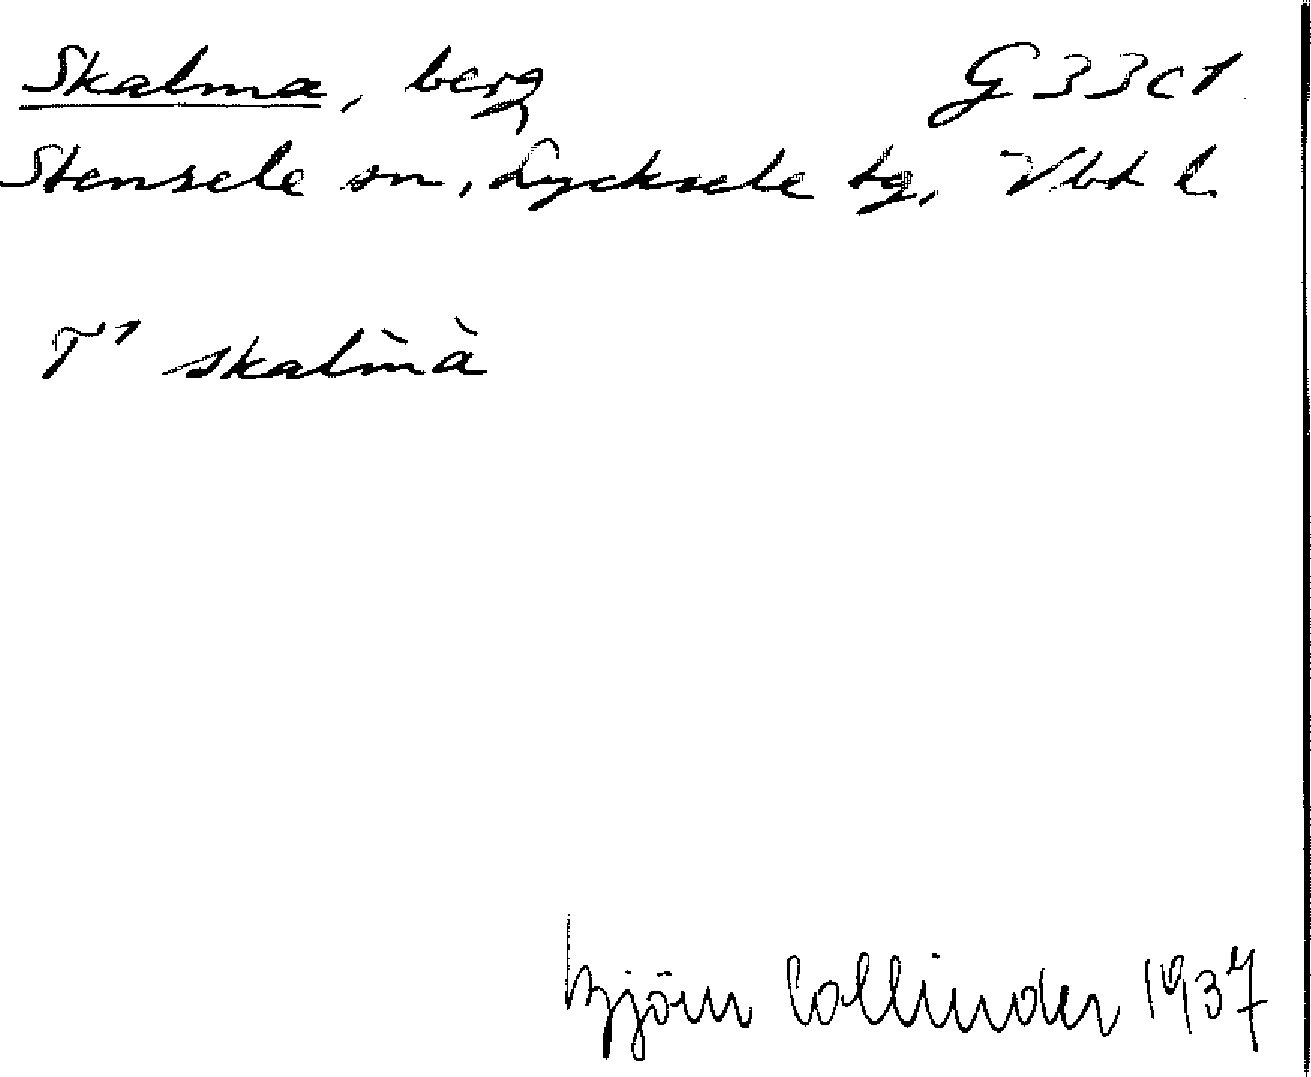 Skalma, berg G 33 c 1
Stensele sn, Lycksele tg, Vbt l.
T¹ skalm̀à
Björn Collinder 1937